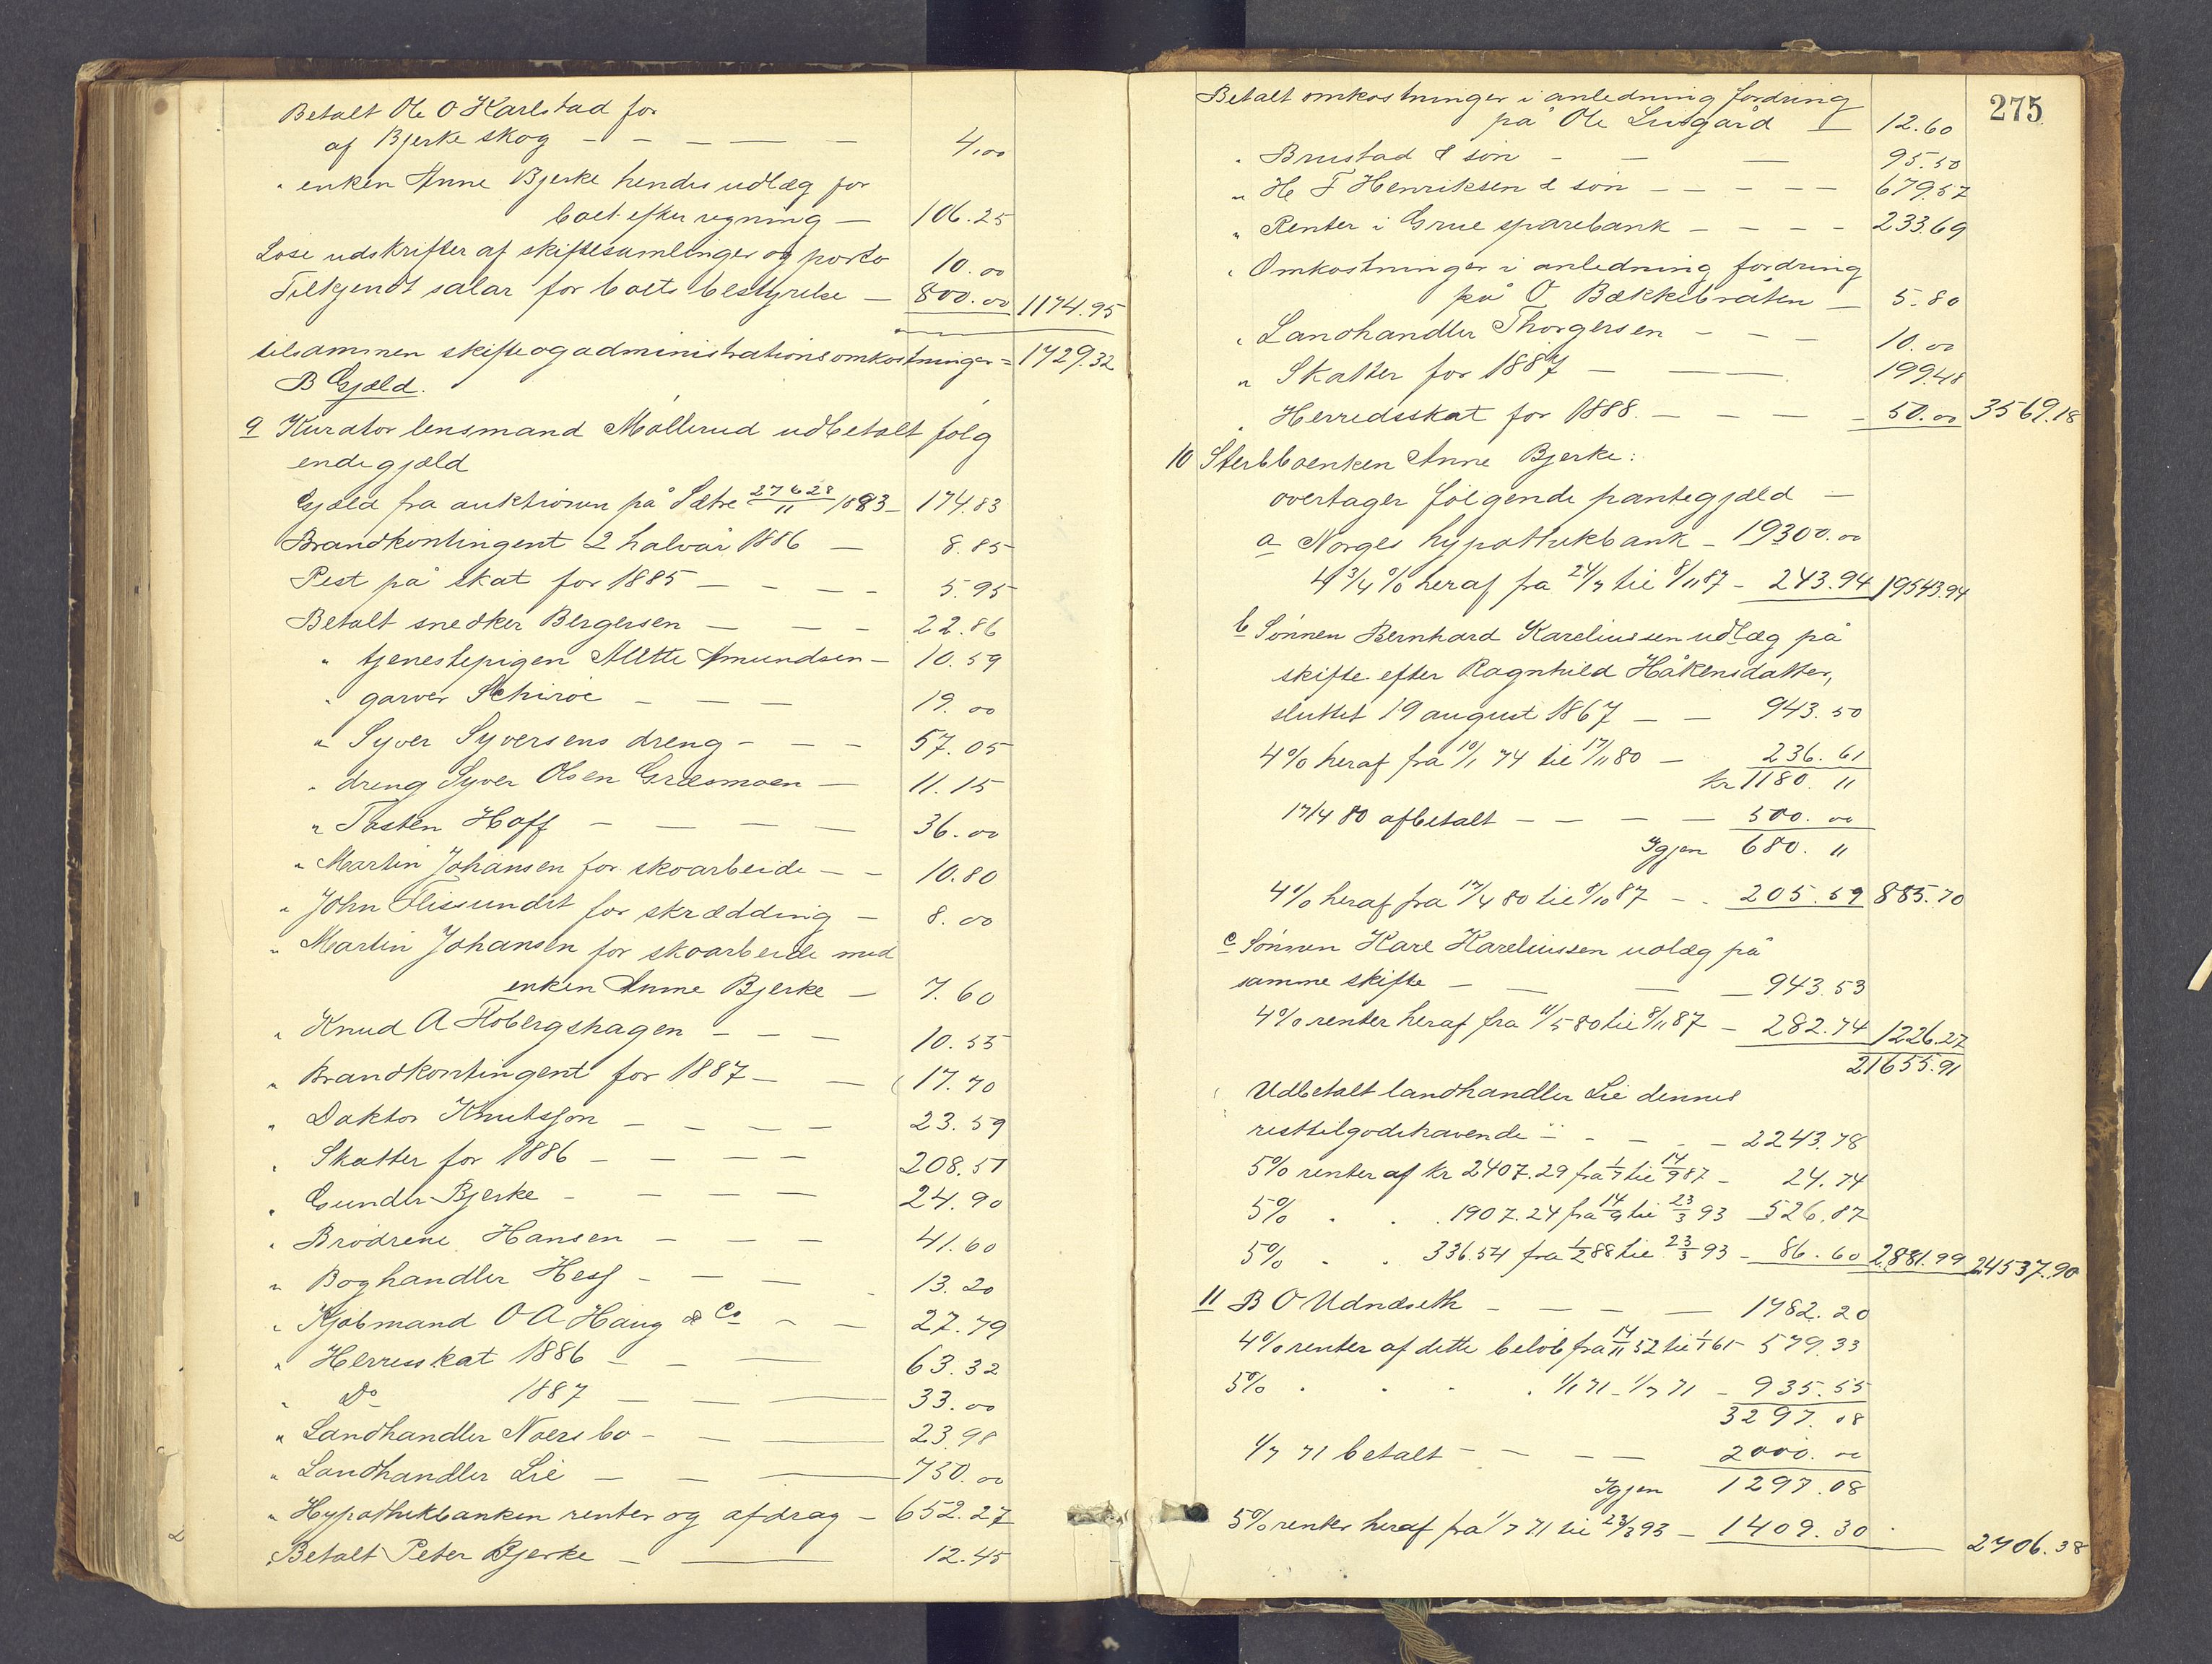 Betalt Ole O Karlstad for
af Bjerke skog — — — — — 4,00
" enken Anne Bjerke hendes udlæg for
boet efter regning — 106.25
Løse udskrifter af skiftesamlinger og porto 10.00
Tilkjendt salær for boets bestyrelse — 800.00 1174.95
tilsammen skifte og administrationsomkostninger = 1729.32
B Gjæld.
a Kurator lensmand Møllerud udbetalt følg
ende gjæld
Gjæld fra auktionen på Sætre 27 & 28/11 1883 — 174.83
Brandkontingent 2 halvår 1886 — 8.85
Rest på skat for 1885 — — — — 5.95
Betalt snedker Bergersen — — — 22.86
" tjenestepigen Mette Amundsen — 10.59
" garver Schirøe — — — 19.00
" Syver Syversens dreng — — — 57.05
" dreng Syver Olsen Græsmoen — 11.15
" Tosten Hoff — — — — 36.00
" Martin Johansen for skoarbeide — — 10.80
" John Flissundet for skrædding — 8.00
" Martin Johansen for skoarbeide med
enken Anne Bjerke — 7.60
" Knud A Flobergshagen — — — 10.55
" Brandkontingent for 1887 — — 17.70
" Doktor Knutsson — — — — 23.59
" Skatter for 1886 — — — — 208.51
" Gunder Bjerke — — — — 24.90
" Brødrene Hansen — — — 41.60
" Boghandler Hess — — — 13.20
" Kjøbmand O A Haug & Co — — 27.79
" Herredsskat 1886 — — — 63.32
" Do 1887 — — — 33.00
" Landhandler Noersbo — — — 23.98
" Landhandler Lie — — — 730.00
" Hypothekbanken renter og afdrag — 652.27
Betalt Peter Bjerke — — 12.45
275
Betalt omkostninger i anledning fordring
på Ole Lusgård — 12.60
" Brustad & søn — — — 95.50
" H F Henriksen & søn — — — — — 679.57
" Renter i Grue sparebank — — — — 233.69
" Omkostninger i anledning fordring
på O Bækkebråten — 5.80
" Landhandler Thorgersen — — — 10.00
" Skatter for 1887 — — 199.48
" Herredsskat for 1888 — — — — 50.00 3569.18
10 Sterbboenken Anne Bjerke:
overtager følgende pantegjæld —
a Norges hypothekbank — 19300.00
4 3/4 % heraf fra 24/7 til 8/11 87 — 243.94 19543.94
b Sønnen Bernhard Kareliussen udlæg på
skifte efter Ragnhild Håkensdatter,
sluttet 19 august 1867 — — 943.50
4% heraf fra 10/1 74 til 17/11 80 — 236.61
kr 1180.11
17/4 80 afbetalt — — — — 500.00
Igjen 680.11
4% heraf fra 17/4 80 til 8/10 87 — — 205.59 885.70
c Sønnen Karl Kareliussen udlæg på
samme skifte — — — — 943.53
4% renter heraf fra 11/5 80 til 8/11 87 — 282.74 1226.27
21655.91
Udbetalt landhandler Lie dennes
resttilgodehavende — — — — — 2243.78
5% renter af kr 2407.29 fra 1/7 til 14/9 87 — 24.74
5% " " 1907.24 fra 14/9 til 23/3 93 — 526.87
5% " " 336.54 fra 1/2 88 til 23/3 93 — 86.60 2881.99 24537.90
11 B O Udnæseth — — — — 1782.20
4% renter af dette beløb fra 14/11 52 til 1/1 61 — 579.33
5% " " " " 1/1 71 – 1/7 71 — 935.55
3297.08
1/7 71 betalt — — — — 2000.00
Igjen 1297.08
5% renter heraf fra 1/7 71 til 23/3 93 — 1409.30 2706.38